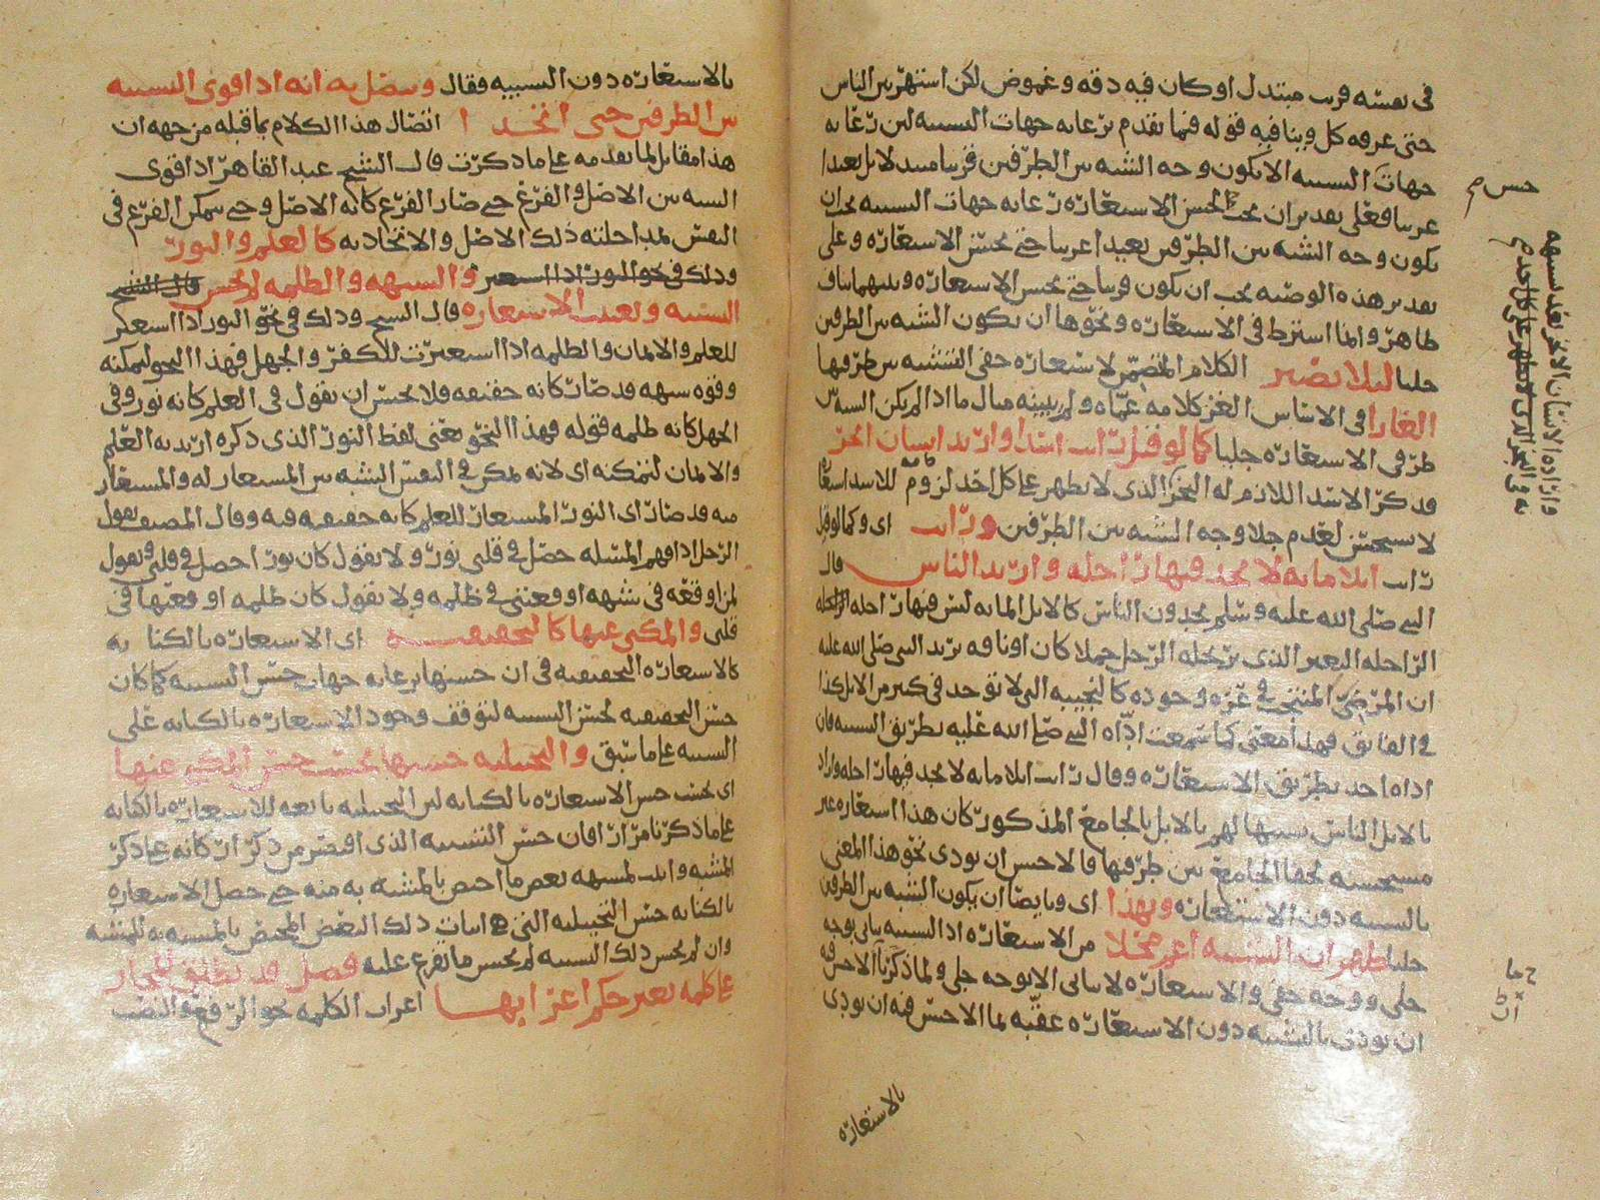 في نفسه قريب مبتدل او كان فيه دقه وغموض لكن اشتهر بين الناس
حتى عرفه كل وينافيه قوله فيما تقدم برعايه جهات التشبيه لان رعايه
جهات التشبيه الا يكون وجه الشبه بين الطرفين قريبا مبتدلا بل بعيدا
غريبا فعلى تقدير ان يجب لحسن الاستعاره رعايه جهات التشبيه يجب ان
يكون وجه الشبه بين الطرفين بعيدا غريبا حتى يحسن الاستعاره وعلى
تقدير هذه الوصيه يجب ان يكون قريبا حتى يحسن الاستعاره وبينهما تناف
ظاهر وانما اشترط في الاستعاره ونحوها ان يكون الشبه بين الطرفين
جليا ليلا يصير الكلام المتضمن لاستعاره خفي التشبيه بين طرفيها
الغازا في الاساس الغز كلامه عماه ولم يبينه مثال ما اذا لم يكن الشبه بين
طرفي الاستعاره جليا كما لو قيل رايت اسدا واريد انسان ابخر
فذكر الاسد اللازم له البخر الذي لا يظهر على كل احد لزومه للاسد
لا يستحسن لعدم جلا وجه الشبه بين الطرفين ورايت اي وكما لو قيل
رايت ابلا مايه لا تجد فيها راحله واريد الناس قال
النبي صلى الله عليه وسلم تجدون الناس كالابل المايه ليس فيها راحله الراحله
الراحله البعير الذي يرتحله الرجل جملا كان او ناقه يريد النبي صلى الله عليه
ان المرضي المنتجب في عزه وجوده كالنجيبه التي لا توجد في كثير من الابل
فهذا معنى كما سمعت اداه النبي صلى الله عليه بطريق التشبيه فان
اداه احد بطريق الاستعاره وقال رايت ابلا مايه لا تجد فيها راحله واراد
بالابل الناس تشبيها لهم بالابل بالجامع المذكور كان هذا استعاره غير
مستحسنه لخفا الجامع بين طرفيها فالاحسن ان يودى نحو هذا المعنى
بالتشبيه دون الاستعاره وبهذا اي وبايضا ان يكون الشبه بين الطرفين
جليا ظهر ان التشبيه اعم محلا من الاستعاره اذ التشبيه ياتي بوجه
جلي ووجه خفي والاستعاره لا ياتي الا بوجه جلي ولما ذكر ان الاحسن فيه
ان يودى بالتشبيه دون الاستعاره عقبه بما الاحسن فيه ان يودى
بالاستعاره
حسن صح
بالاستعاره دون التشبيه فقال ويتصل به انه اذا قوى الشبه
بين الطرفين حتى اتحدا اتصال هذا الكلام بما قبله من جهه ان
هذا مقابل لما تقدمه على ما ذكرت قال الشيخ عبد القاهر اذا قوى
الشبه بين الاصل والفرع حتى صار الفرع كانه الاصل وحتى يتمكن الفرع في
النفس بمداخلته ذلك الاصل والاتحاد به كالعلم والنور
والشبهه والظلمه لم يحسن
التشبيه وتعينت الاستعاره قال الشيخ وذلك في نحو النور اذا استعير
للعلم والايمان والظلمه اذا استعيرت للكفر والجهل فهذا النحو لتمكنه
وقوه شبهه قد صار كانه حقيقه ولا يحسن ان تقول في العلم كانه نور وفي
الجهل كانه ظلمه قوله فهذا النحو يعني لفظ النور الذي ذكره اريد به العلم
والايمان لتمكنه اي لانه تمكن في النفس الشبه بين المستعار له والمستعار
منه قد صار اي النور المستعار للعلم كانه حقيقه فيه وقال المصنف يقول
الرجل اذا فهم المسئله حصل في قلبي نور ولا يقول كان نورا حصل في قلبي ويقول
لمن اوقعه في شبهه اوقعتني في ظلمه ولا يقول كان ظلمه اوقعتها في
قلبي والمكني عنها كالتحقيقيه اي الاستعاره بالكنايه
كالاستعاره التحقيقيه في ان حسنها برعايه جهات حسن التشبيه كما كان
حسن التحقيقيه بحسن التشبيه لتوقف وجود الاستعاره بالكنايه على
التشبيه على ما سبق والتخييليه حسنها بحسب حسن المكني عنها
اي بحسب حسن الاستعاره بالكنايه لان التخييليه تابعه للاستعاره بالكنايه
على ما ذكرنا مرارا فان حسن التشبيه الذي اقتصر من ذكر اركانه على ذكر
المشبه واثبت لمشبهه بعض ما اختص بالمشبه به منه حتى حصل الاستعاره
بالكنايه حسن التخييليه التي هي اثبات ذلك البعض المختص بالمشبه به للمشبه
وان لم يحسن ذلك التشبيه لم يحسن ما تفرع عليه فصل قد يطلق المجاز
على كلمه تغير حكم اعرابها اعراب الكلمه نحو الرفع والنصب